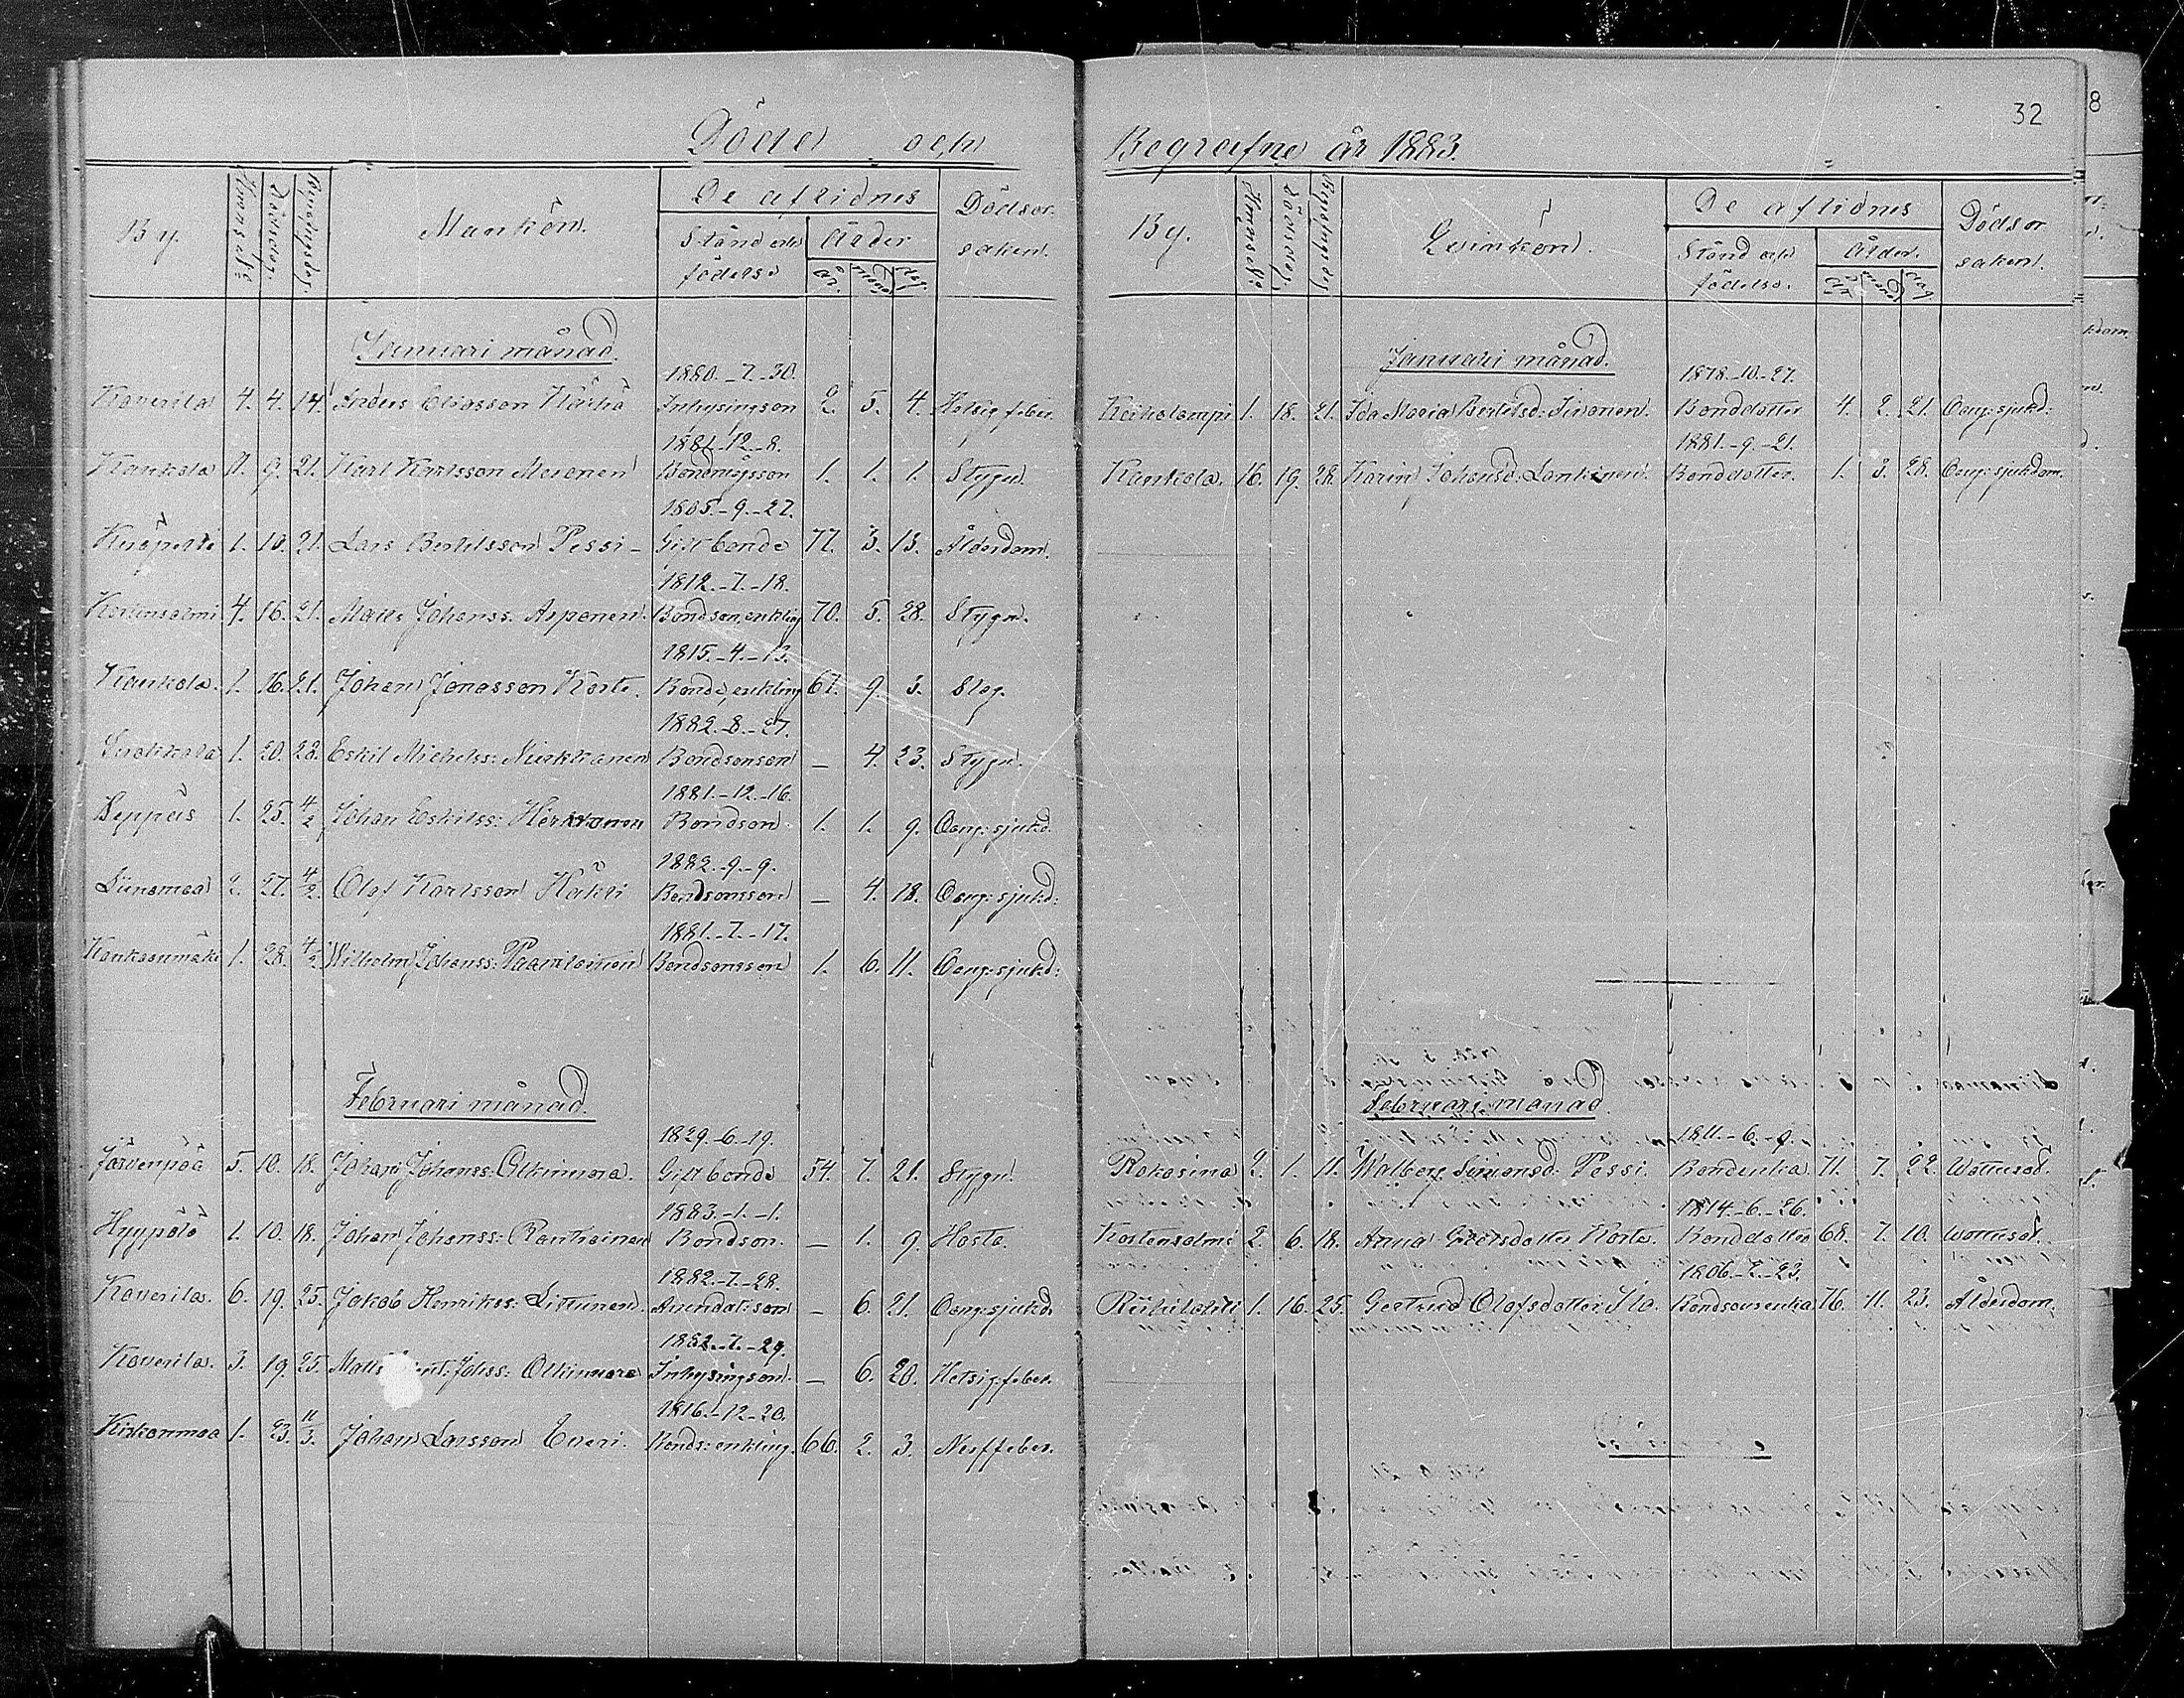 Döde och
Begrafne år 1883.
32
8
By.
Dödsdag.
Begrafningsdag.
Mankön.
De aflidnes
Stånd och födelse
Ålder
år. månad dag.
Dödsorsaken.
Januari månad.
1880.-7.-30.
Kaverila 4. 4. 14. Anders Eliasson Härkö Inhysingson 2. 5. 4. Hetsig feber.
1881.-12.-8.
Kaukola 11. 9. 21. Karl Karlsson Meronen Bondmågsson 1. 1. 1. Stygn.
1805.-9.-27.
1. 10. 21. Lars Bertilsson Pessi - Gift bonde 77. 3. 13. Ålderdom.
1812.-7.-18.
Kortensalmi 4. 16. 21. Matts Johanss: Asponen. Bondson, enkling 70. 5. 28. Stygn.
1815.-4.-13.
Kaukola. 1. 16. 21. Johan Jonasson Korte. Bonde, enkling 67. 9. 3. Slag.
1882.-8.-27.
Suokkola 1. 20. 28. Eskil Michelss: Nurkkanen Bondsonson — 4. 23. Stygn.
1881.-12.-16.
Seppäis 1. 25. 4/2 Johan Eskilss: Härkönen Bondson. 1. 1. 9. Oang: sjukd.
1882.-9.-9.
Liinamaa 2. 27. 4/2. Olaf Karlsson Häkli Bondsonsson — 4. 18. Oang: sjukd:
1881.-7.-17.
Kankaanmäki 1. 28. 4/2. Wilhelm Johanss: Paavilainen Bondsonsson 1. 6. 11. Oang: sjukd:
Februari månad.
1829.-6.-19.
Järvenpää 5. 10. 18. Johan Johanss: Olkinuora. Gift bonde 54. 7. 21. Stygn.
1883.-1.-1.
Hyypölä 1. 10. 18. Johan Johanss: Rantanen Bondson. — 1. 9. Hosta.
1882.-7.-28.
Kaverila. 6. 19. 25. Jakob Henrikss: Littunen. Arendat: son — 6. 21. Oang: sjukd.
1882.-7.-29.
Kaverila. 3. 19. 25. Matts Johss: Olkinuora Inhysingson. — 6. 20. Hetsig feber.
1816.-12.-20.
Kirkonmaa 1. 23. 11/3. Johan Larsson Everi. Bonds: enkling. 66. 2. 3. Nerffeber.
By.
Dödsdag.
Begrafningsdag
Qvinkön.
De aflidnes
Stånd och födelse.
Ålder.
år månad dag
Dödsorsaken.
Januari månad.
1878.-10.-27.
Koikolampi 1. 18. 21. Ida Maria Bertilsd: Sironen. Bonddotter 4. 2. 21. Oang: sjukd:
1881.-9.-21.
Kaukola. 16. 19. 28. Karin Johansd: Lankinen. Bonddotter. 1. 3. 28. Oang: sjukdom.
Februari månad
1811.-6.-9.
Rokosina 2. 1. 11. Walborg Simonsd: Pessi. Bondenka 71. 7. 22. Wattusot.
1814.-6.-26.
Kortensalmi 2. 6. 18. Anna Geor sdotter Korte. Bonddotter 68. 7. 10. Wattusot.
1806.-2.-23.
Riihilahti 1. 16. 25. Gertrud Olofsdotter Ilo. Bondsonsenka 76. 11. 23. Ålderdom.